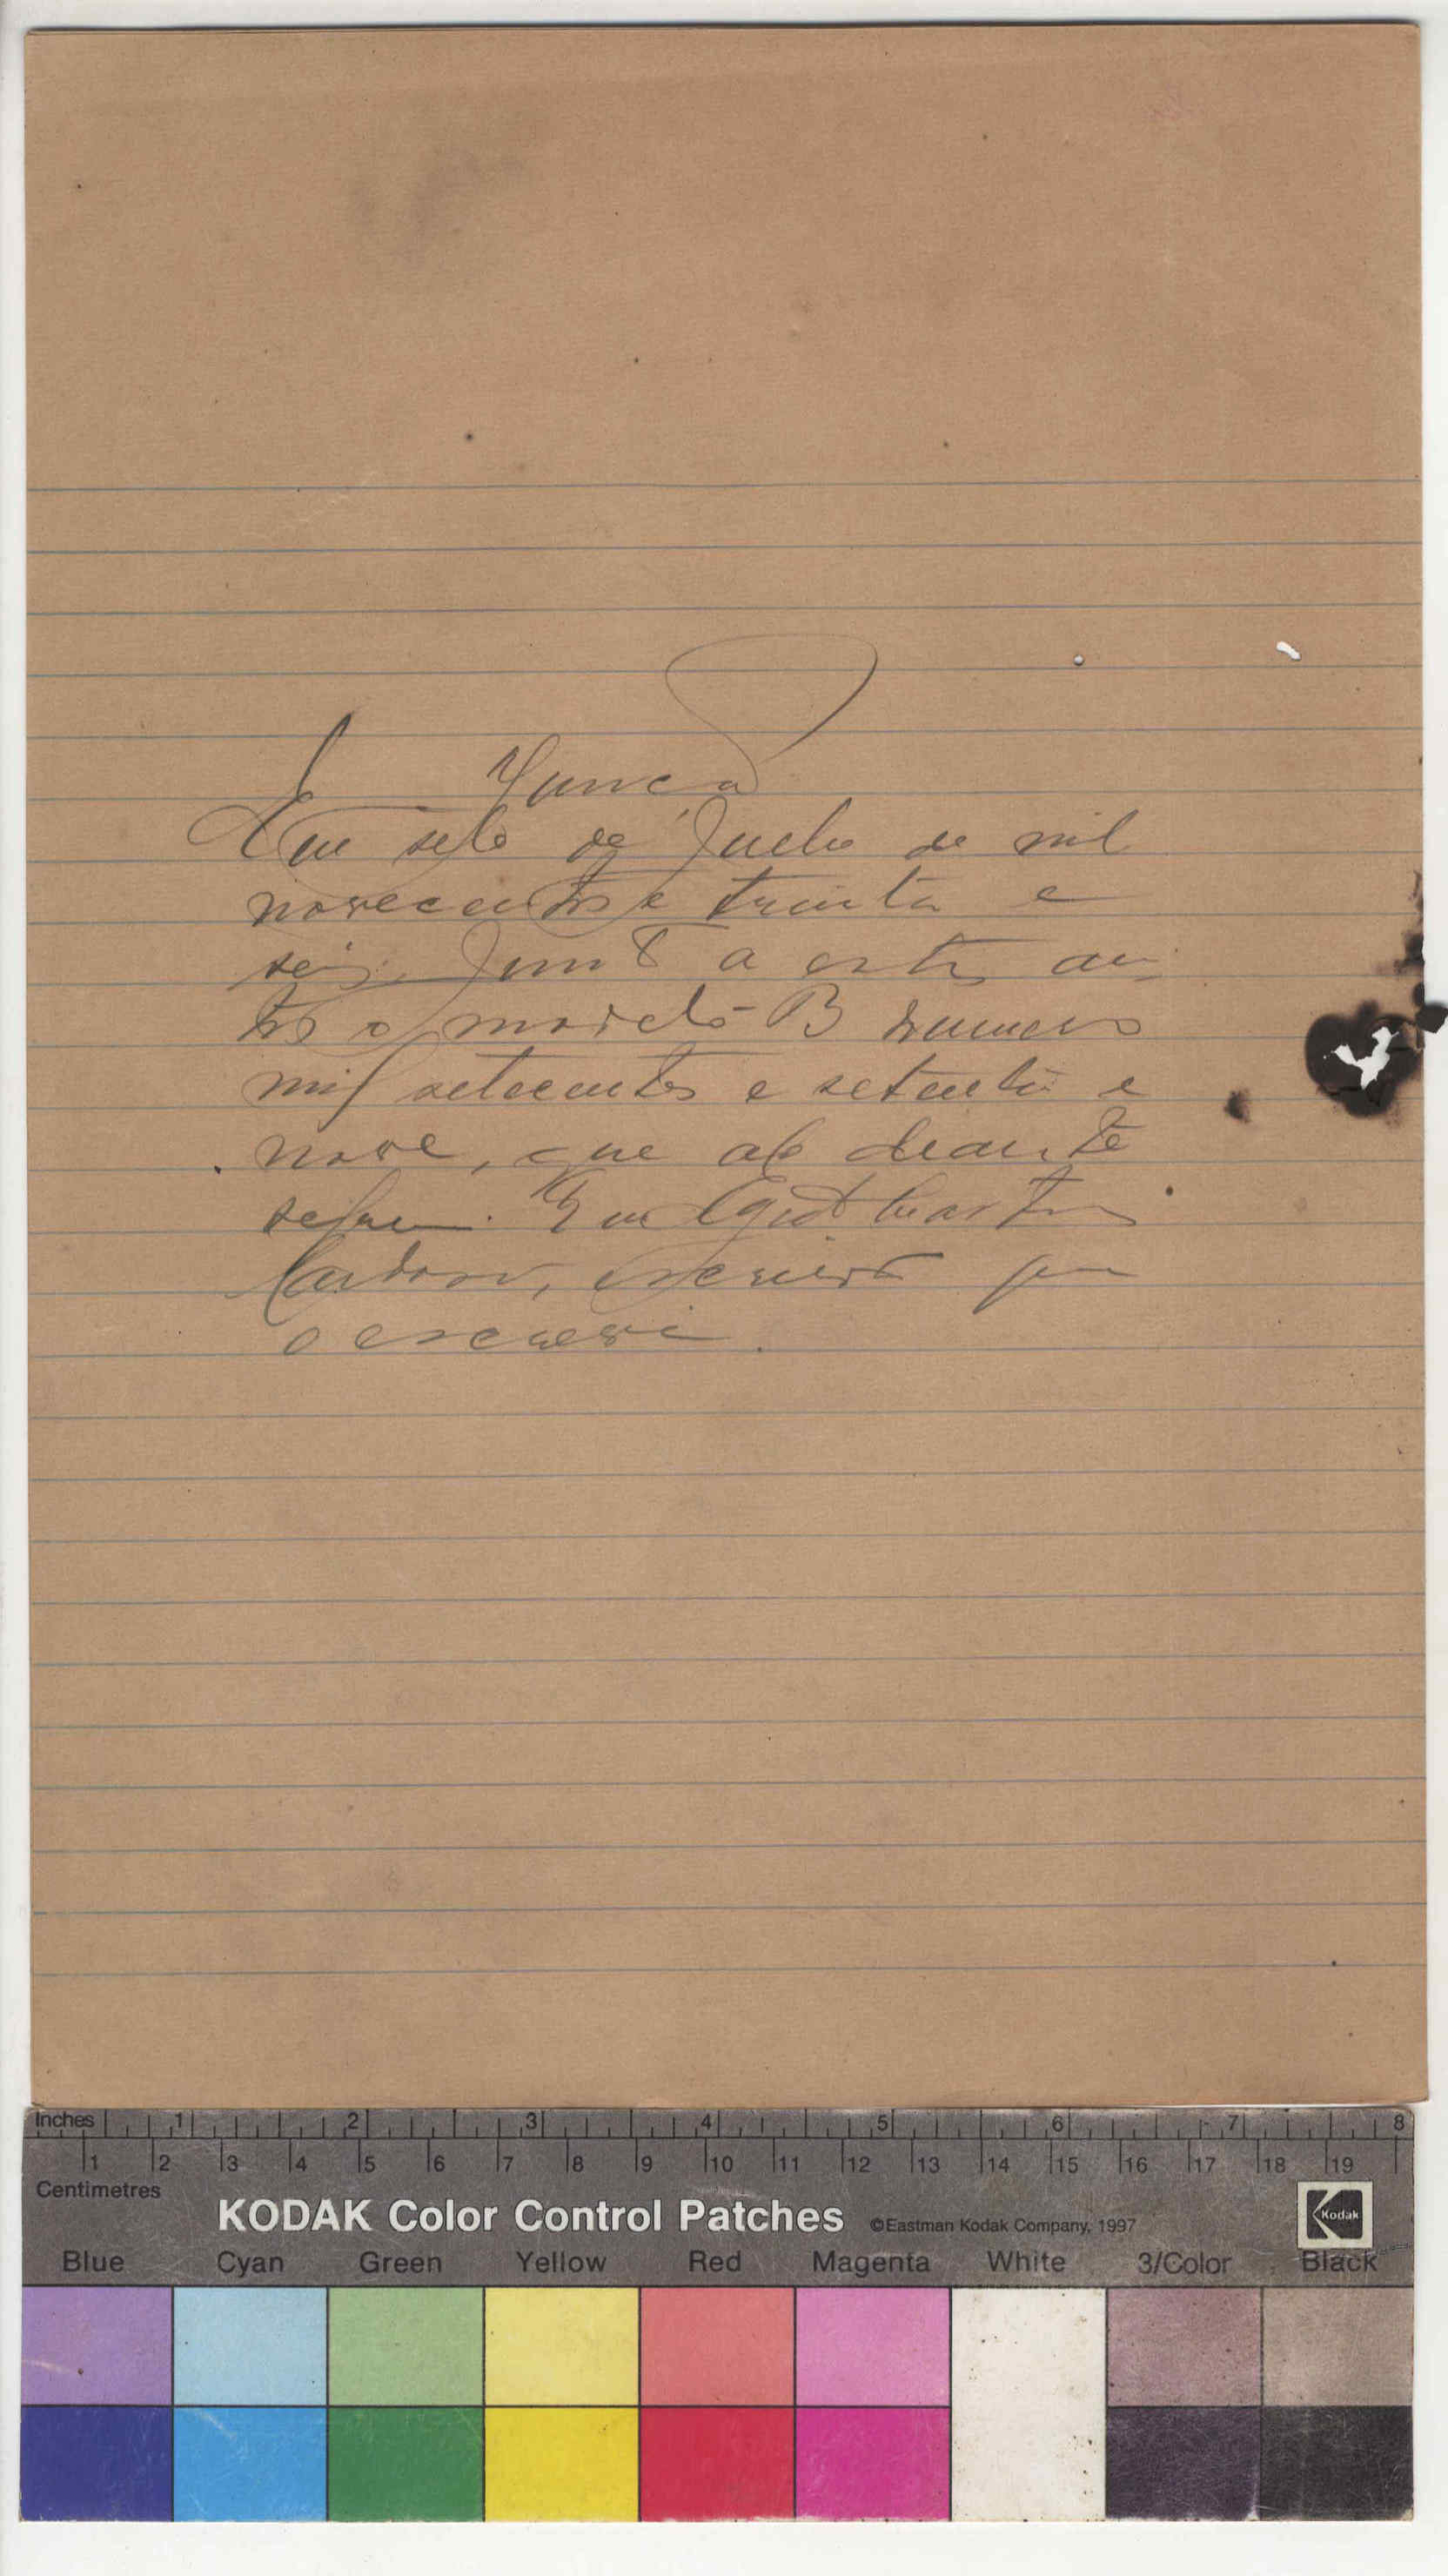 Juncada
Em sete de Julho de mil
novecentos e trinta e
seis, junto a estes au
tos o modelo B numero
mil setecentos e setenta e
nove, que ao deante
segue. Eu Egidio Martins
Cardoso, escrivão que
o escrevi.
Inches 1 2 3 4 5 6 7 8
1 2 3 4 5 6 7 8 9 10 11 12 13 14 15 16 17 18 19
Centimetres
KODAK Color Control Patches ©Eastman Kodak Company, 1997 Kodak
Blue Cyan Green Yellow Red Magenta White 3/Color Black